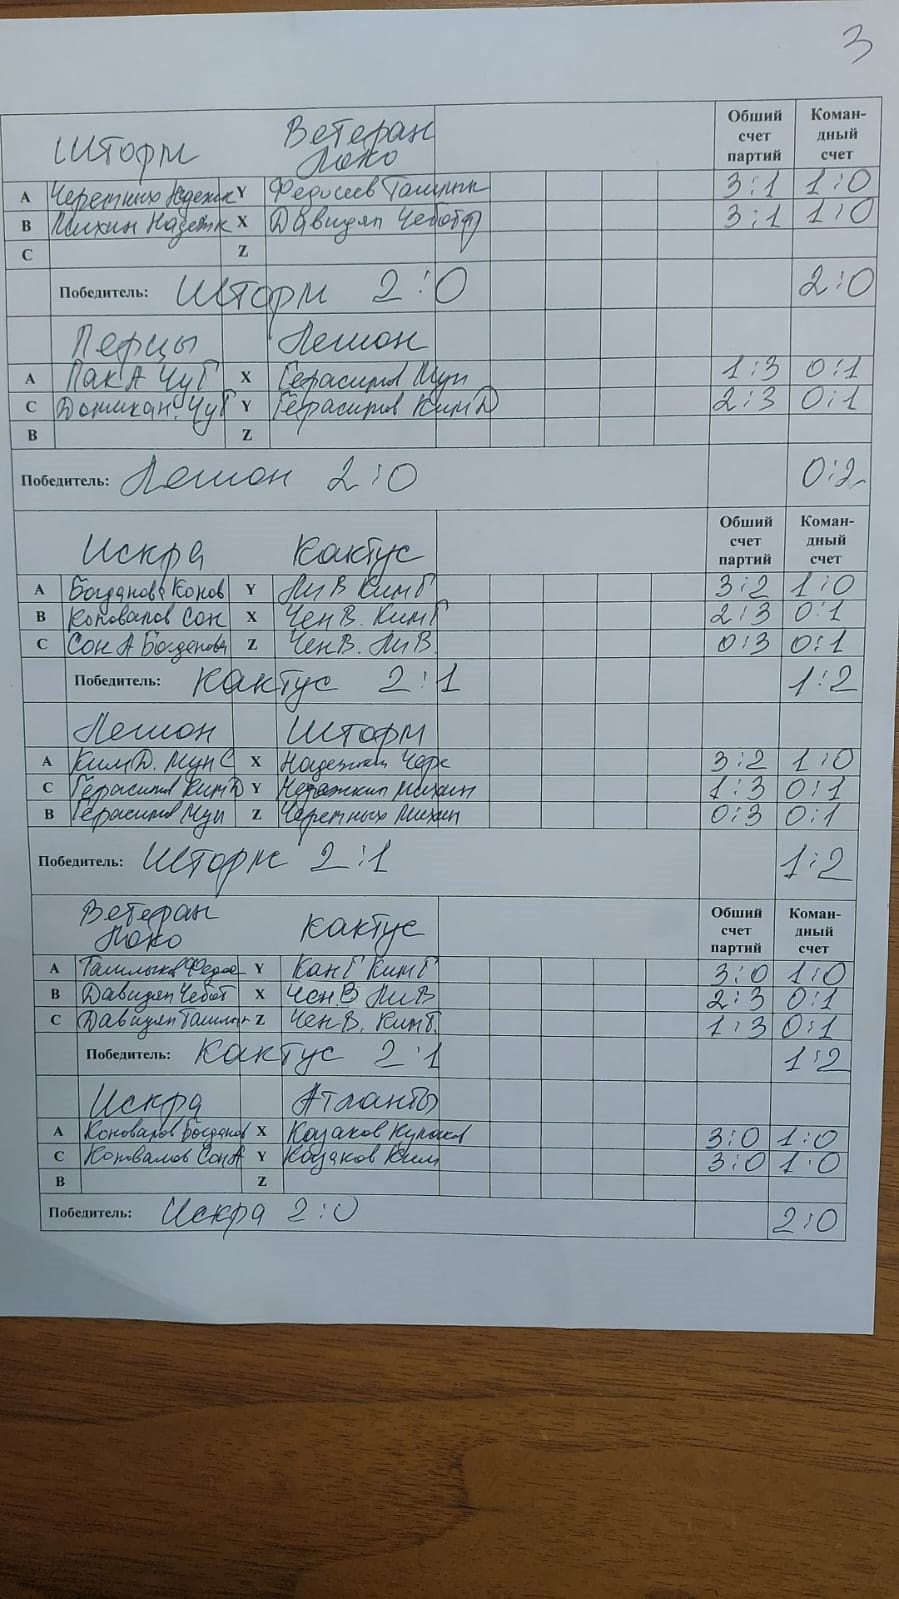 3
Шторм Ветеран Локо Общий счет партий Коман-дный счет
A Y Федосеев 3:1 1:0
B Михин X Давидян 3:1 1:0
C Z
Победитель: Шторм 2:0 2:0
Перцы Легион
A Пак А Чуг X Герасимов Мун 1:3 0:1
C Чуг Y Герасимов Ким Д 2:3 0:1
B Z
Победитель: Легион 2:0 0:2
Искра Кактус Общий счет партий Коман-дный счет
A Богданов Конов Y Ли В Ким Г 3:2 1:0
B Коновалов Сон X Чен В. Ким Г 2:3 0:1
C Сон А Богданов Z Чен В. Ли В. 0:3 0:1
Победитель: Кактус 2:1 1:2
Легион Шторм
A Ким Д. Мун С X 3:2 1:0
C Герасимов Ким Д Y Михин 1:3 0:1
B Герасимов Мун Z Михин 0:3 0:1
Победитель: Шторм 2:1 1:2
Ветеран Локо Кактус Общий счет партий Коман-дный счет
A Y Ким Г 3:0 1:0
B Давидян Чебот X Чен В Ли В 2:3 0:1
C Давидян Z Чен В. Ким Г. 1:3 0:1
Победитель: Кактус 2:1 1:2
Искра Атланты
A Коновалов Богданов X Козаков 3:0 1:0
C Коновалов Сон А Y Козаков Ким 3:0 1:0
B Z
Победитель: Искра 2:0 2:0